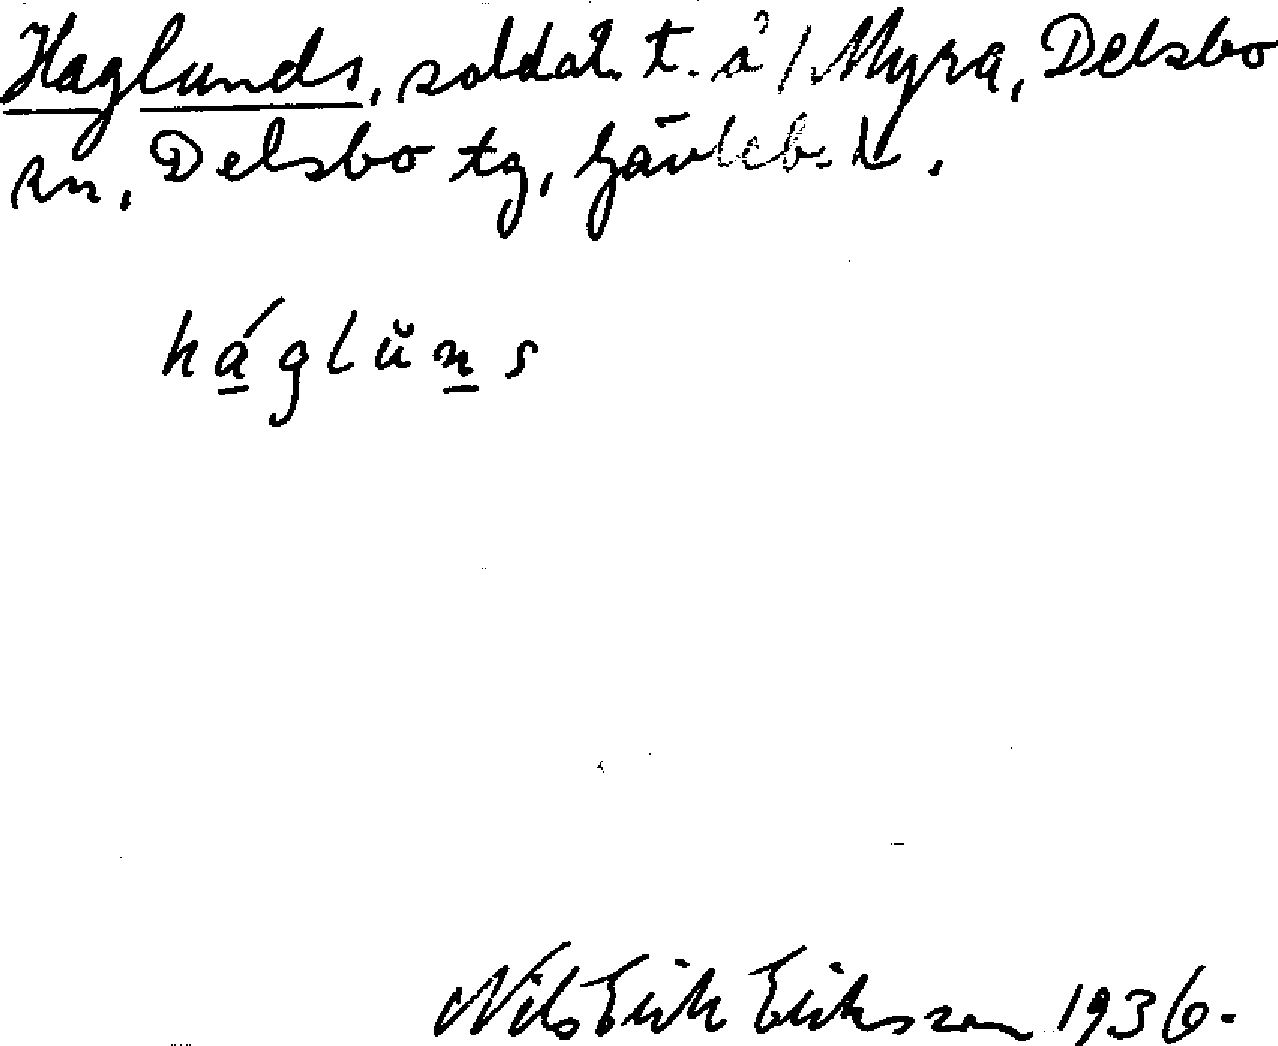 Haglunds, soldat t. å /. Myra, Delsbo
sn, Delsbo tg, Gävleb. l.
háglŭns
Nils Erik Eriksson 1936.